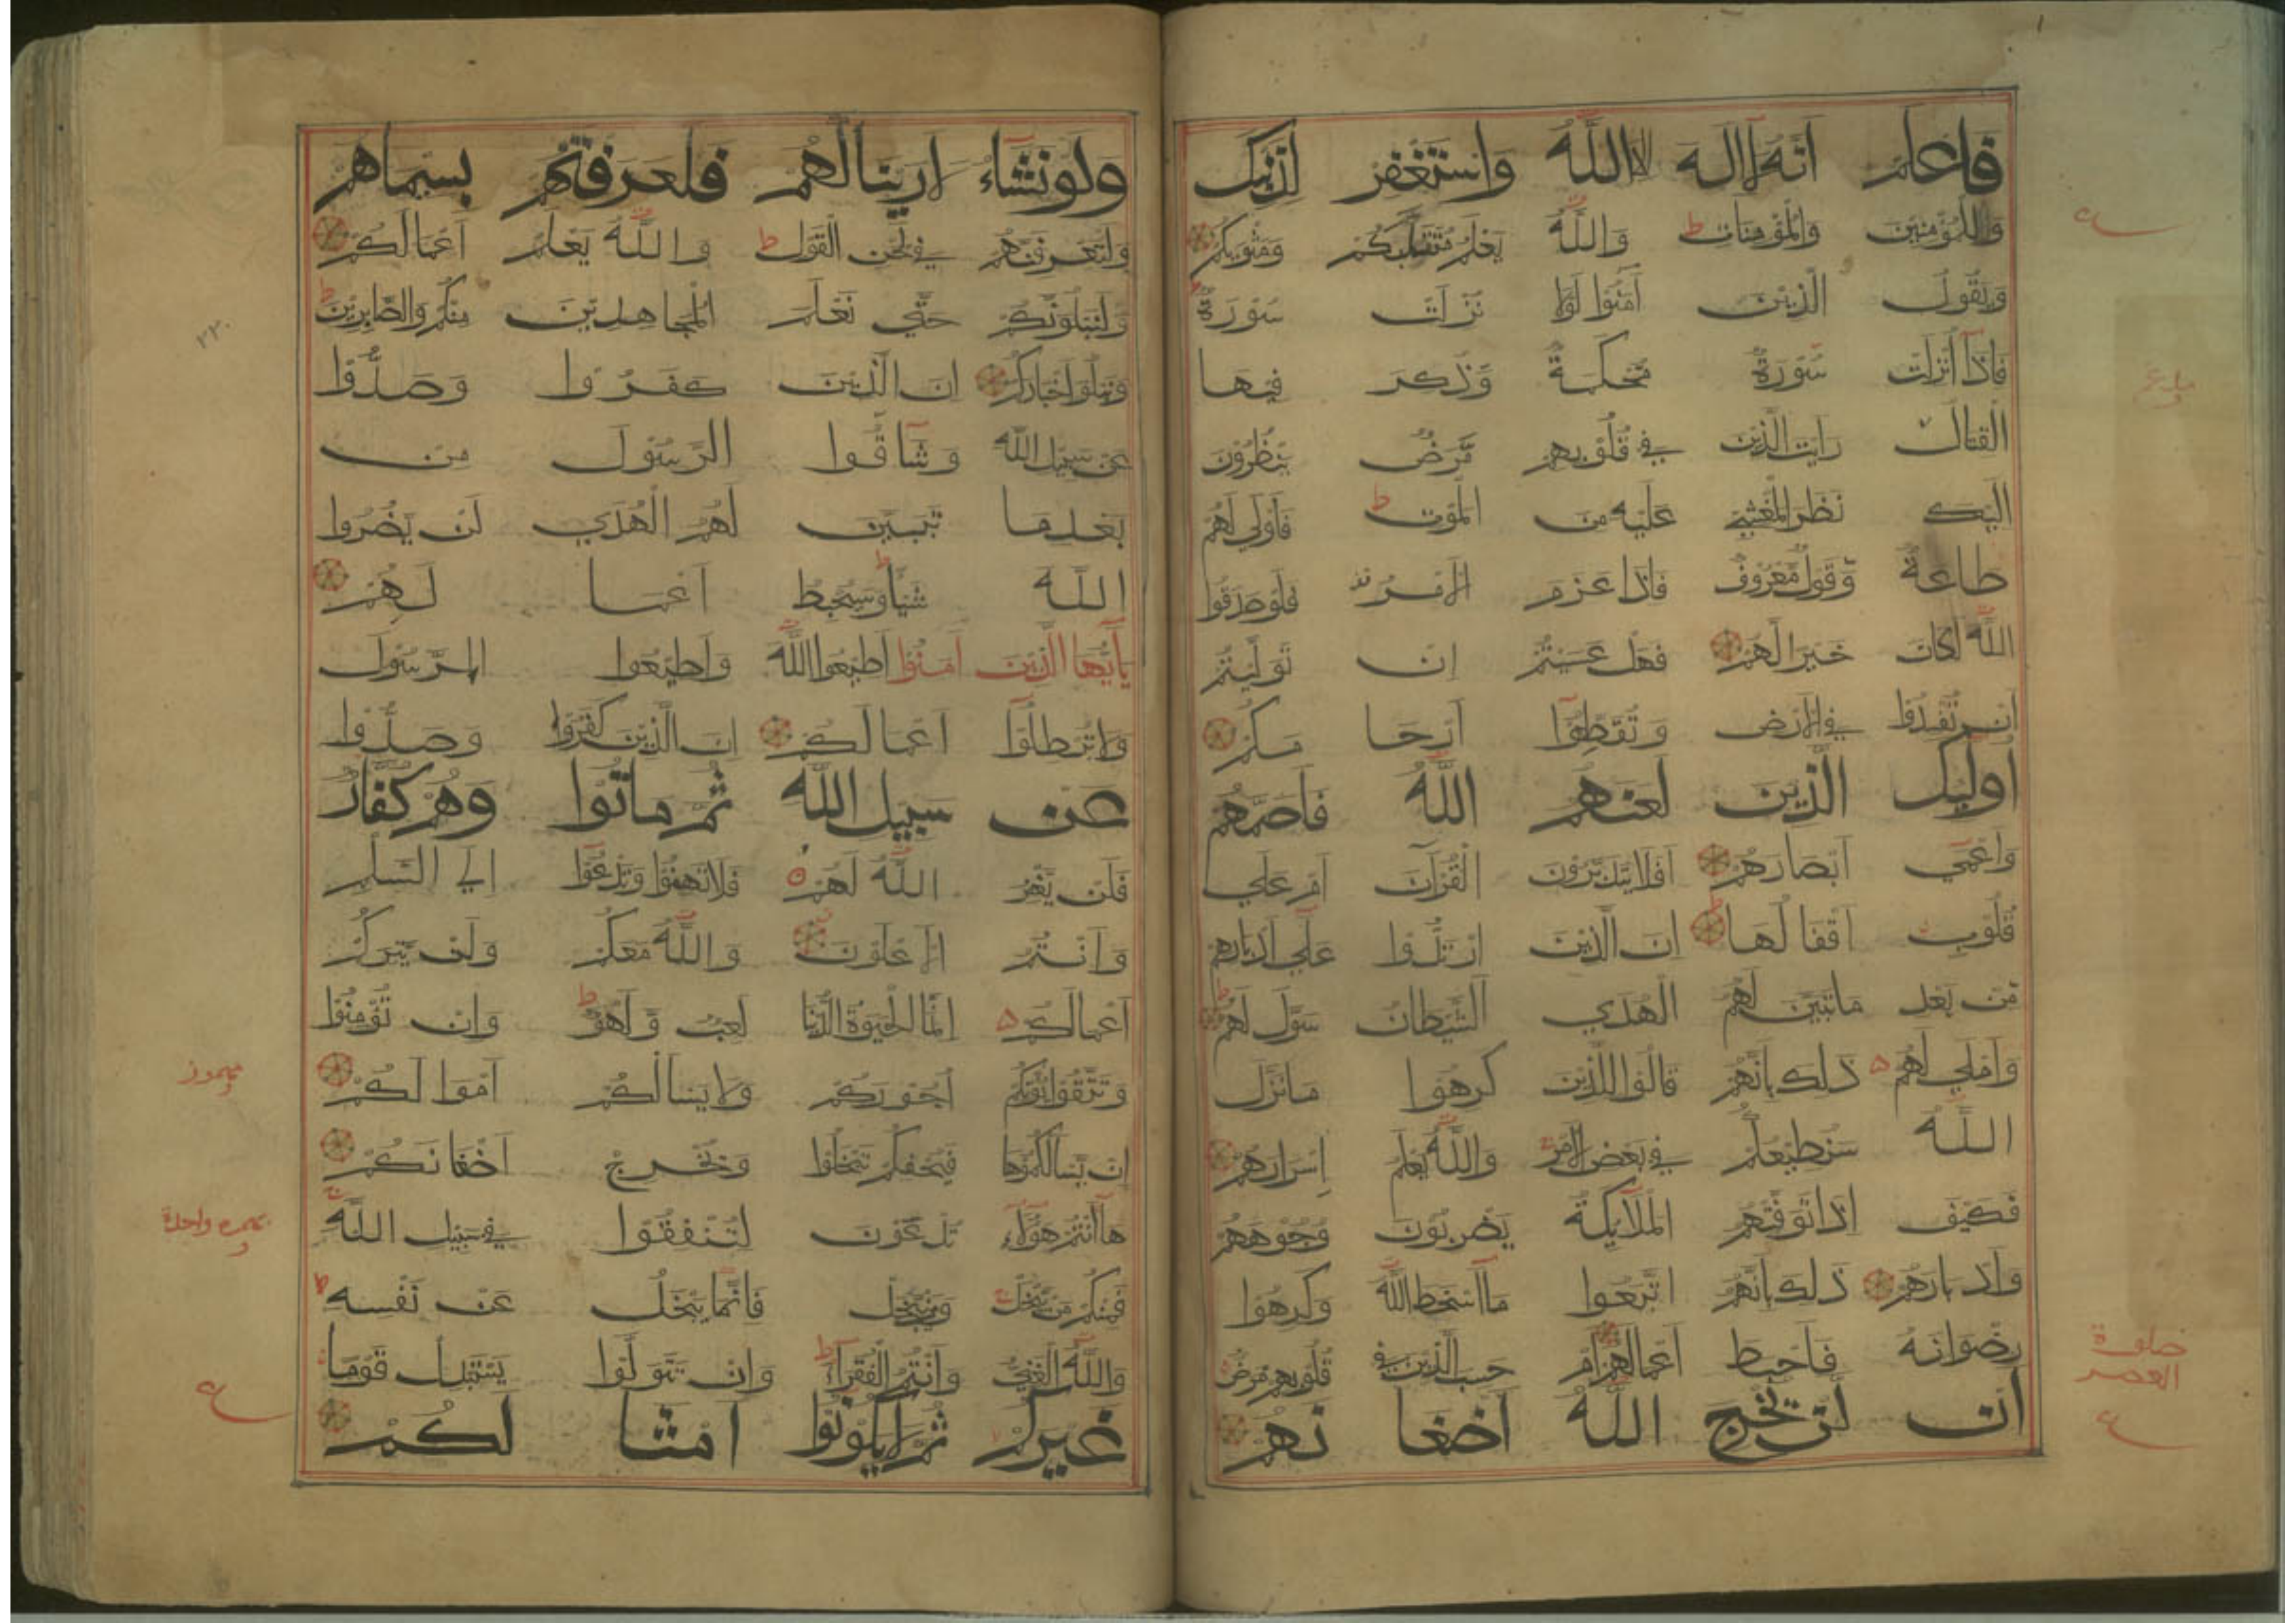 فاعلم انه لا اله الا الله واستغفر لذنبك
وللمؤمنين والمؤمنات ط والله يعلم متقلبكم ومثويكم
ويقول الذين آمنوا لولا نزلت سورة
فاذا أنزلت سورة محكمة وذكر فيها
القتال رايت الذين في قلوبهم مرض ينظرون
اليك نظر المغشي عليه من الموت ط فاولي لهم
طاعة وقول معروف فاذا عزم الامر فلو صدقوا
الله لكان خيرا لهم فهل عسيتم ان توليتم
ان تفسدوا في الارض وتقطعوا ارحا مكم
اوليك الذين لعنهم الله فاصمهم
واعمي ابصارهم افلا يتدبرون القرآن ام علي
قلوب اقفالها ان الذين ارتدوا علي ادبارهم
من بعد ماتبين لهم الهدي الشيطان سول لهم ط
واملي لهم ذلك بانهم قالوا للذين كرهوا مانزل
الله سنطيعكم في بعض الامر والله يعلم اسرارهم
فكيف اذا توفتهم الملايكة يضربون وجوههم
وادبارهم ذلك بانهم اتبعوا ما اسخط الله وكرهوا
رضوانه فاحبط اعمالهم ام حسب الذين في قلوبهم مرض
ان لن يخرج الله اضغا نهم
صلوة
العصر
ع
ولو نشاء لاريناكهم فلعرفتهم بسيماهم
ولتعرفنهم في لحن القول ط والله يعلم اعمالكم
ولنبلونكم حتي نعلم المجاهدين منكم والصابرين
ونبلوا اخباركم ان الذين كفروا وصدوا
عن سبيل الله وشاقوا الرسول من
بعد ما تبين لهم الهدي لن يضروا
الله شيأ وسيحبط اعما لهم
يآيها الذين آمنوا اطيعوا الله واطيعوا الرسول
ولا تبطلوا اعمالكم ان الذين كفروا وصدوا
عن سبيل الله ثم ماتوا وهم كفار
فلن يغفر الله لهم فلا تهنوا وتدعوا الي السلم
وانتم الاعلون والله معكم ولن يتركم
اعمالكم انما الحيوة الدنيا لعب ولهو ط وان تؤمنوا
وتتقوا يؤتكم اجوركم ولا يسالكم اموالكم
ان يسالكموها فيحفكم تبخلوا ويخرج اضغانكم
ها انتم هؤلاء تدعون لتنفقوا في سبيل الله
فمنكم من يبخل ومن يبخل فانما يبخل عن نفسه ط
والله الغني وانتم الفقراء ط وان تتولوا يستبدل قوما
غيركم ثم لا يكونوا امثا لكم
٢٢٠
واحدة
ع